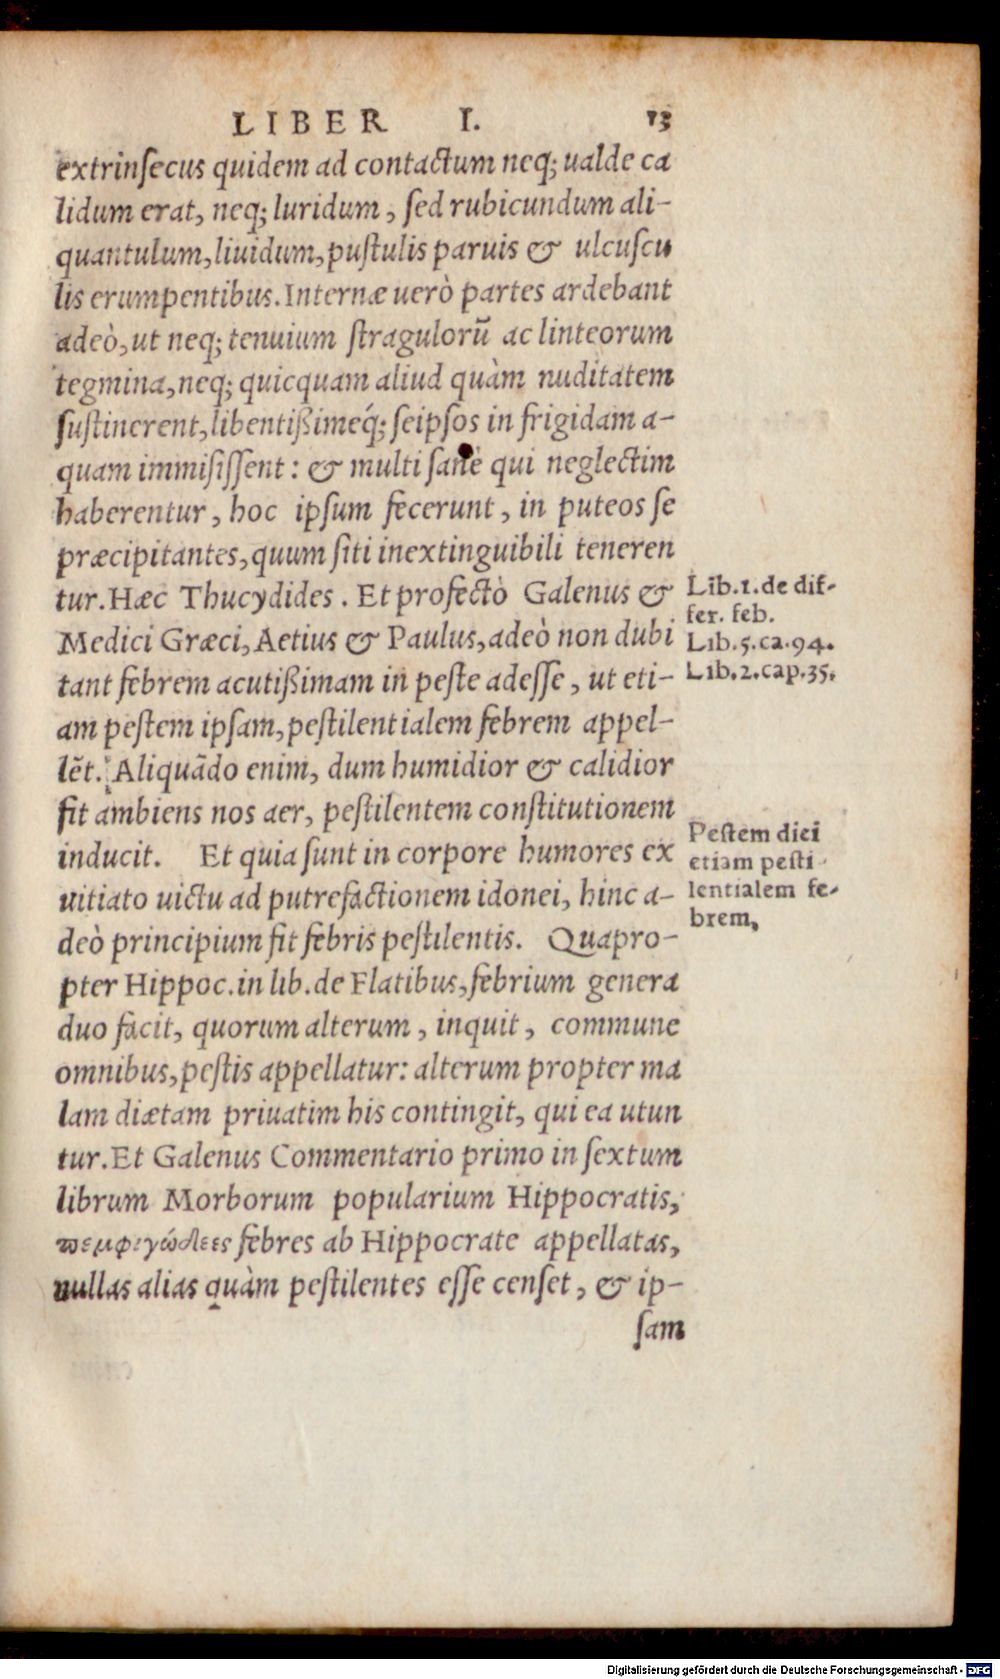 LIBER I. 13
extrinſecus quidem ad contactum neq; ualde ca
lidum erat, neq; luridum, ſed rubicundum ali-
quantulum, liuidum, puſtulis paruis & ulcuſcu
lis erumpentibus. Internæ uerò partes ardebant
adeò, ut neq; tenuium ſtragulorũ ac linteorum
tegmina, neq; quicquam aliud quàm nuditatem
ſuſtinerent, libentißimeq́; ſeipſos in frigidam a-
quam immiſiſſent: & multi ſanè qui neglectim
haberentur, hoc ipſum fecerunt, in puteos ſe
præcipitantes, quum ſiti inextinguibili teneren
tur. Hæc Thucydides. Et profectò Galenus &
Medici Græci, Aetius & Paulus, adeò non dubi
tant febrem acutißimam in peſte adeſſe, ut eti-
am peſtem ipſam, peſtilentialem febrem appel-
lẽt. Aliquãdo enim, dum humidior & calidior
fit ambiens nos aer, peſtilentem conſtitutionem
inducit. Et quia ſunt in corpore humores ex
uitiato uictu ad putrefactionem idonei, hinc a-
deò principium fit febris peſtilentis. Quapro-
pter Hippoc. in lib. de Flatibus, febrium genera
duo facit, quorum alterum, inquit, commune
omnibus, peſtis appellatur: alterum propter ma
lam diætam priuatim his contingit, qui ea utun
tur. Et Galenus Commentario primo in ſextum
librum Morborum popularium Hippocratis,
πεμφιγώδεες febres ab Hippocrate appellatas,
nullas alias quàm peſtilentes eſſe cenſet, & ip-
ſam
Lib. 1. de dif-
fer. feb.
Lib. 5. ca. 94.
Lib. 2. cap. 35.
Peſtem dici
etiam peſti
lentialem fe-
brem,
Digitalisierung gefördert durch die Deutsche Forschungsgemeinschaft - DFG